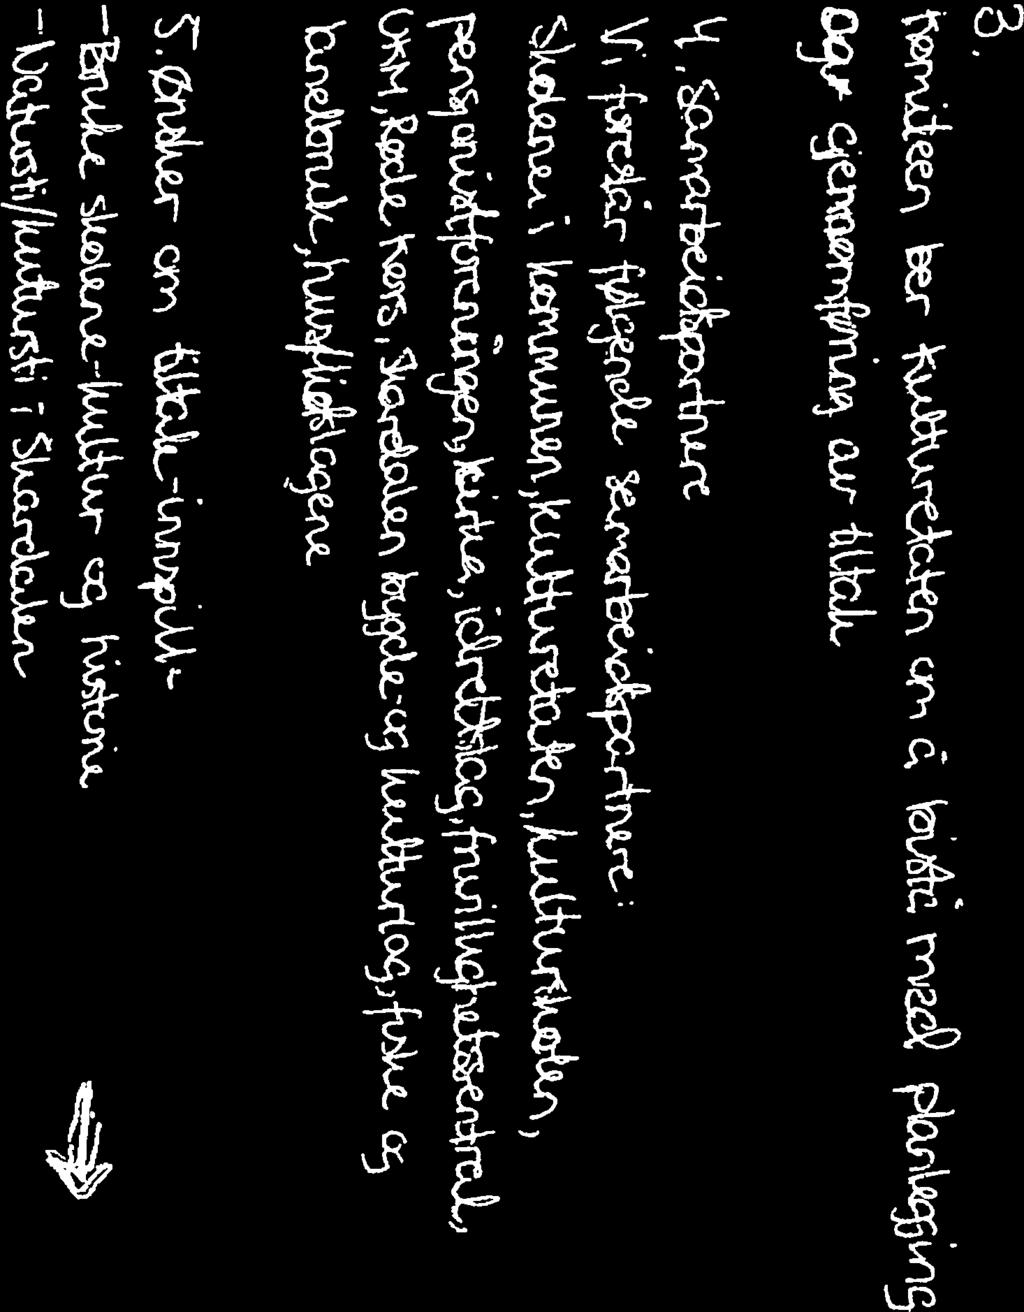 3.
Komiteen ber kulturetaten om å bistå med planlegging
og gjennomføring av tiltak
4. Samarbeidspartnere
Vi foreslår følgende samarbeidspartnere:
Skolene i kommunen, kulturetaten, kulturskolen,
pensjonistforeningen, kirka, idrettslag, frivillighetssentral,
UKM, Røde Kors, Skardalen bygde-og kulturlag, fiske og
bondebruk, husflidslagene
5. Ønsker om tiltak-innspill
-Bruke skolene-kultur og historie
-Natursti/kultursti i Skardalen